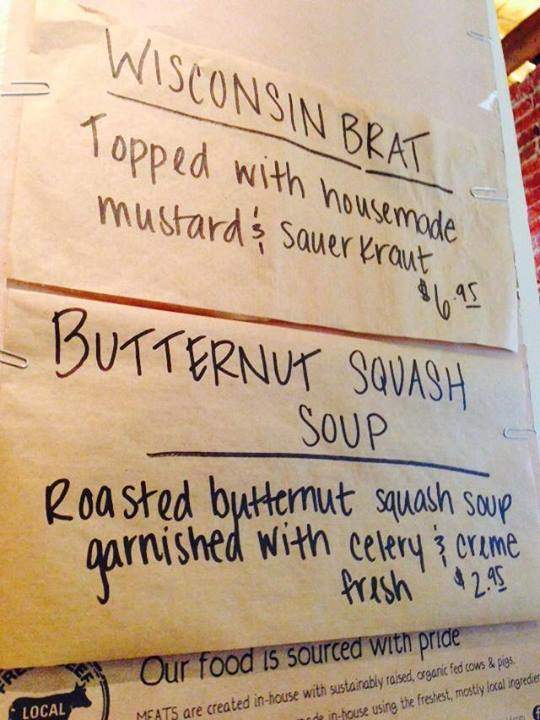 WISCONSIN BRAT
Topped with housemade
mustard & sauerkraut
$6.95
BUTTERNUT SQUASH
SOUP
Roasted butternut squash soup
garnished with celery & creme
fresh $2.95
Our food is sourced with pride
MEATS are created in-house with sustainably raised, organic fed cows & pigs.
in-house using the freshest, mostly local
LOCAL